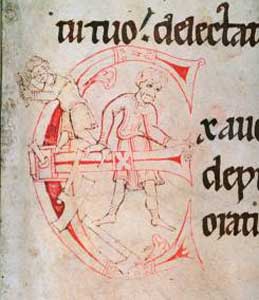 tu tuo. delectat
Exau
depr
orati